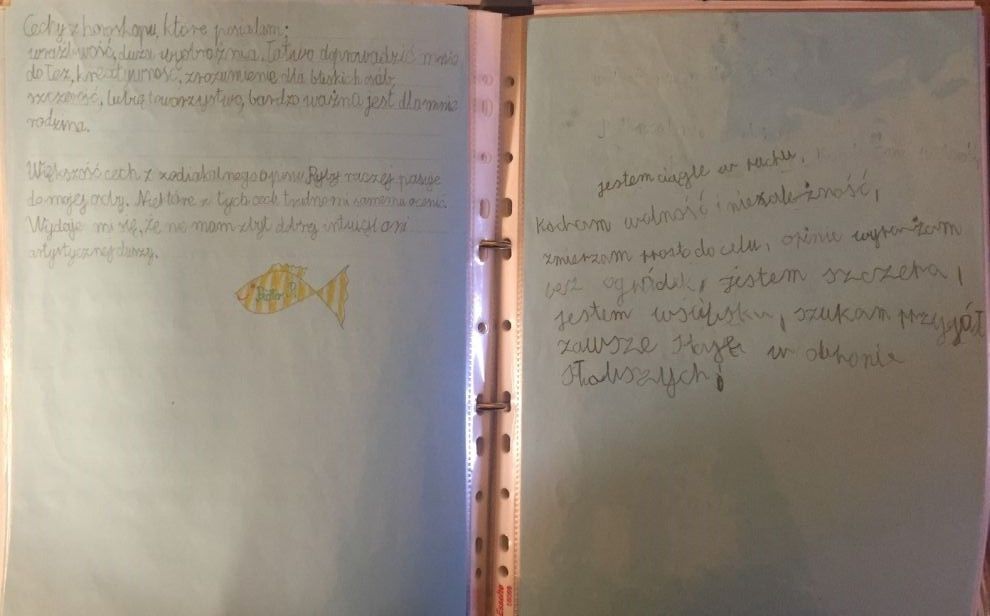 Cechy z horoskopu, które posiadam:
wrażliwość, duża wyobraźnia, łatwo doprowadzić mnie
do łez, kreatywność, zrozumienie dla bliskich osób,
szczerość, lubię towarzystwo, bardzo ważna jest dla mnie
rodzina.
Większość cech z zodiakalnego opisu Ryby raczej pasuje
do mojej osoby. Niektóre z tych cech trudno mi samemu ocenić.
Wydaje mi się, że nie mam zbyt dobrej intuicji ani
artystycznej duszy.
jestem ciągle w ruchu,
Kocham wolność i niezależność,
zmierzam prosto do celu, opinie wyrażam
bez ogródek, jestem szczera,
jestem wścibska, szukam przygód
zawsze staję w obronie
słabszych;
Esselte